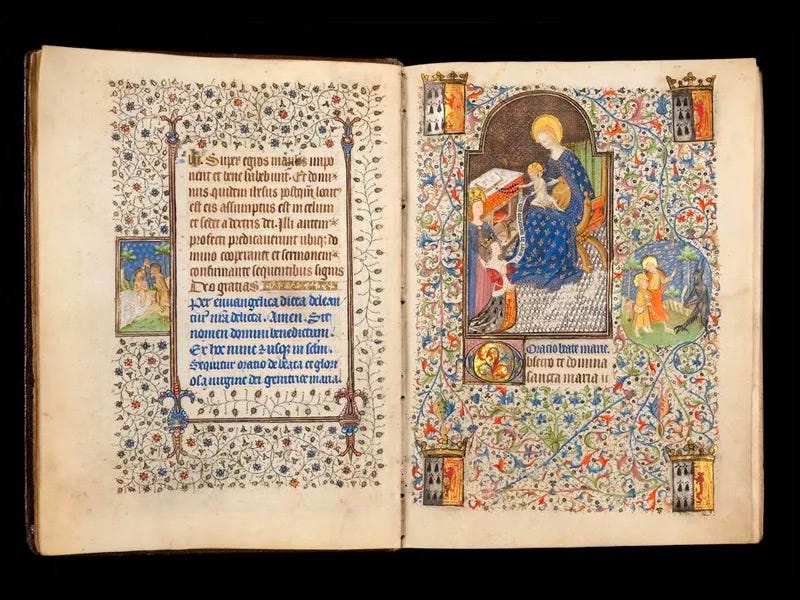 Super egros manus impo
nent et bene habebunt. Et domi
nus quidem ihesus postquam locut
est eis assumptus est in celum
et sedet a dextris dei. Illi autem
profecti predicaverunt ubiqz do
mino cooperante et sermonem
confirmante sequentibus signis
Deo gratias
Per euvangelica dicta delean
tur nra delicta. Amen. Sit
nomen domini benedictum.
Ex hoc nunc & usqz in sclm.
Sequitur oratio de beata et glori
osa virgine dei genitrice maria.
Oratio beate marie.
bsecro te domina
sancta maria